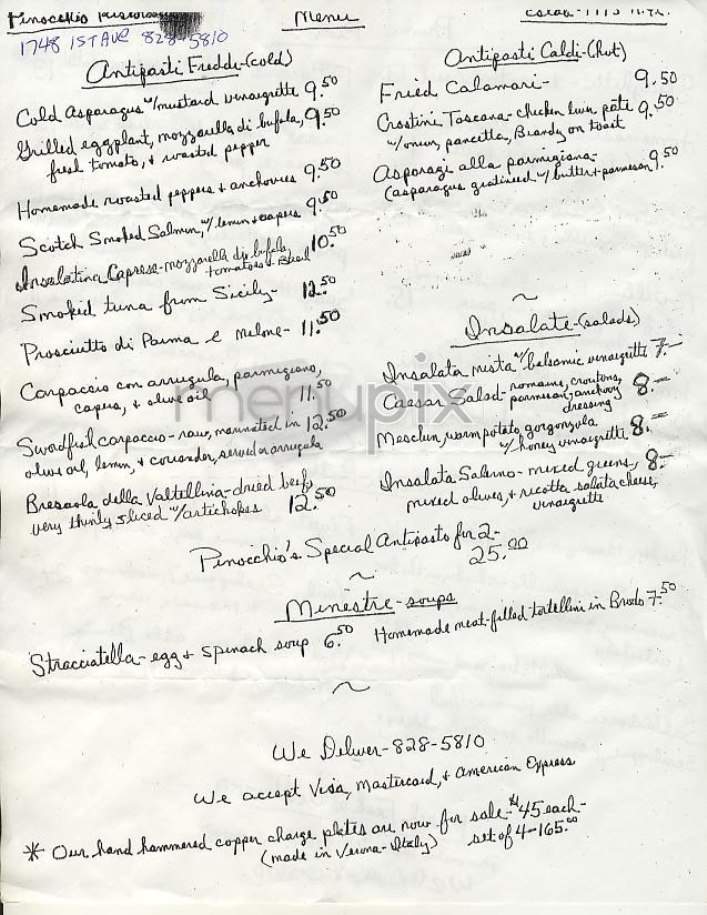 Pinocchio
Menu
1748 1ST AVE 828-5810
Antipasti Freddi-(cold)
Cold Asparagus w/mustard vinaigrette 9.50
Grilled eggplant, mozzarella di bufala, 9.50
fresh tomato, + roasted pepper
Homemade roasted peppers + anchovies 9.50
Scotch Smoked Salmon, w/ lemon + capers 9.50
Insalatina Caprese-mozzarella di bufala, 10.50
tomatoes + Basil
Smoked tuna from Sicily- 12.50
Prosciutto di Parma e melone- 11.50
Carpaccio con arrugula, parmigiano,
capers, + olive oil 11.50
Swordfish carpaccio-raw, marinated in 12.50
olive oil, lemon, + coriander, served on arrugula
Bresaola della Valtellina-dried beef,
very thinly sliced w/artichokes 12.50
Antipasti Caldi-(hot)
Fried Calamari- 9.50
Crostini Toscana-chicken liver pâté 9.50
w/onion, pancetta, Brandy on toast
Asparagi alla parmigiana- 9.50
(asparagus gratineed w/ butter + parmesan)
~
Insalate-(salads)
Insalata mista w/balsamic vinaigrette 7.-
Caesar Salad-romaine, croutons, 8.-
parmesan, anchovy
dressing
Mesclun, warm potato, gorgonzola 8.-
w/honey vinaigrette
Insalata Salerno-mixed greens, 8.-
mixed olives, + ricotta salata cheese,
vinaigrette
Pinocchio's Special Antipasto for 2-
25.00
~
Minestre-soups
Stracciatella-egg + spinach soup 6.50
Homemade meat-filled-tortellini in Brodo 7.50
~
We Deliver-828-5810
We accept Visa, Mastercard, + American Express
* Our hand hammered copper charge plates are now for sale-$45 each-
(made in Verona-Italy) set of 4-165.00
menupix